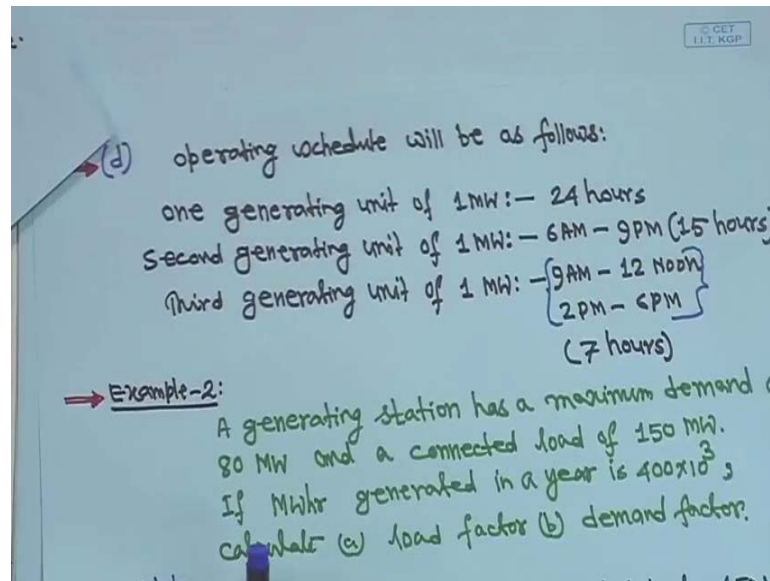 © CET
I.I.T. KGP
(d) operating schedule will be as follows:
one generating unit of 1MW:- 24 hours
Second generating unit of 1MW:- 6AM - 9PM (15 hours)
Third generating unit of 1 MW:- 9AM - 12 Noon
2PM - 6PM
(7 hours)
Example-2:
A generating station has a maximum demand
80 MW and a connected load of 150 MW.
If MWhr generated in a year is 400x10³,
calculate (a) load factor (b) demand factor.